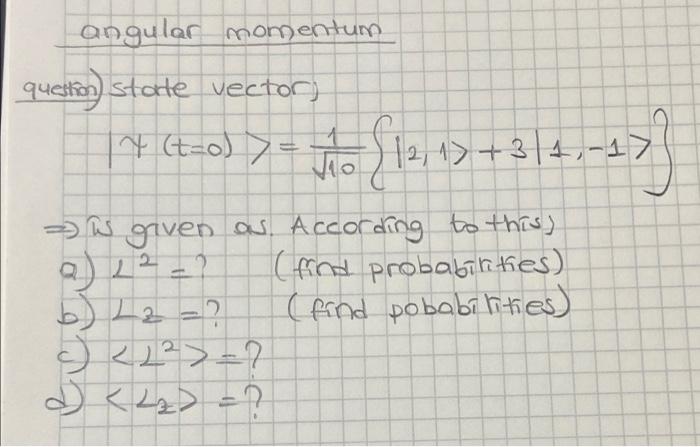 angular momentum
question) state vector;
|ψ (t=0) > = 1/√10 { |2, 1> + 3 |1, -1> }
⇒ is given as. According to this;
a) L² = ? (find probabilities)
b) Lz = ? (find pobabilities)
c) <L²> = ?
d) <Lz> = ?